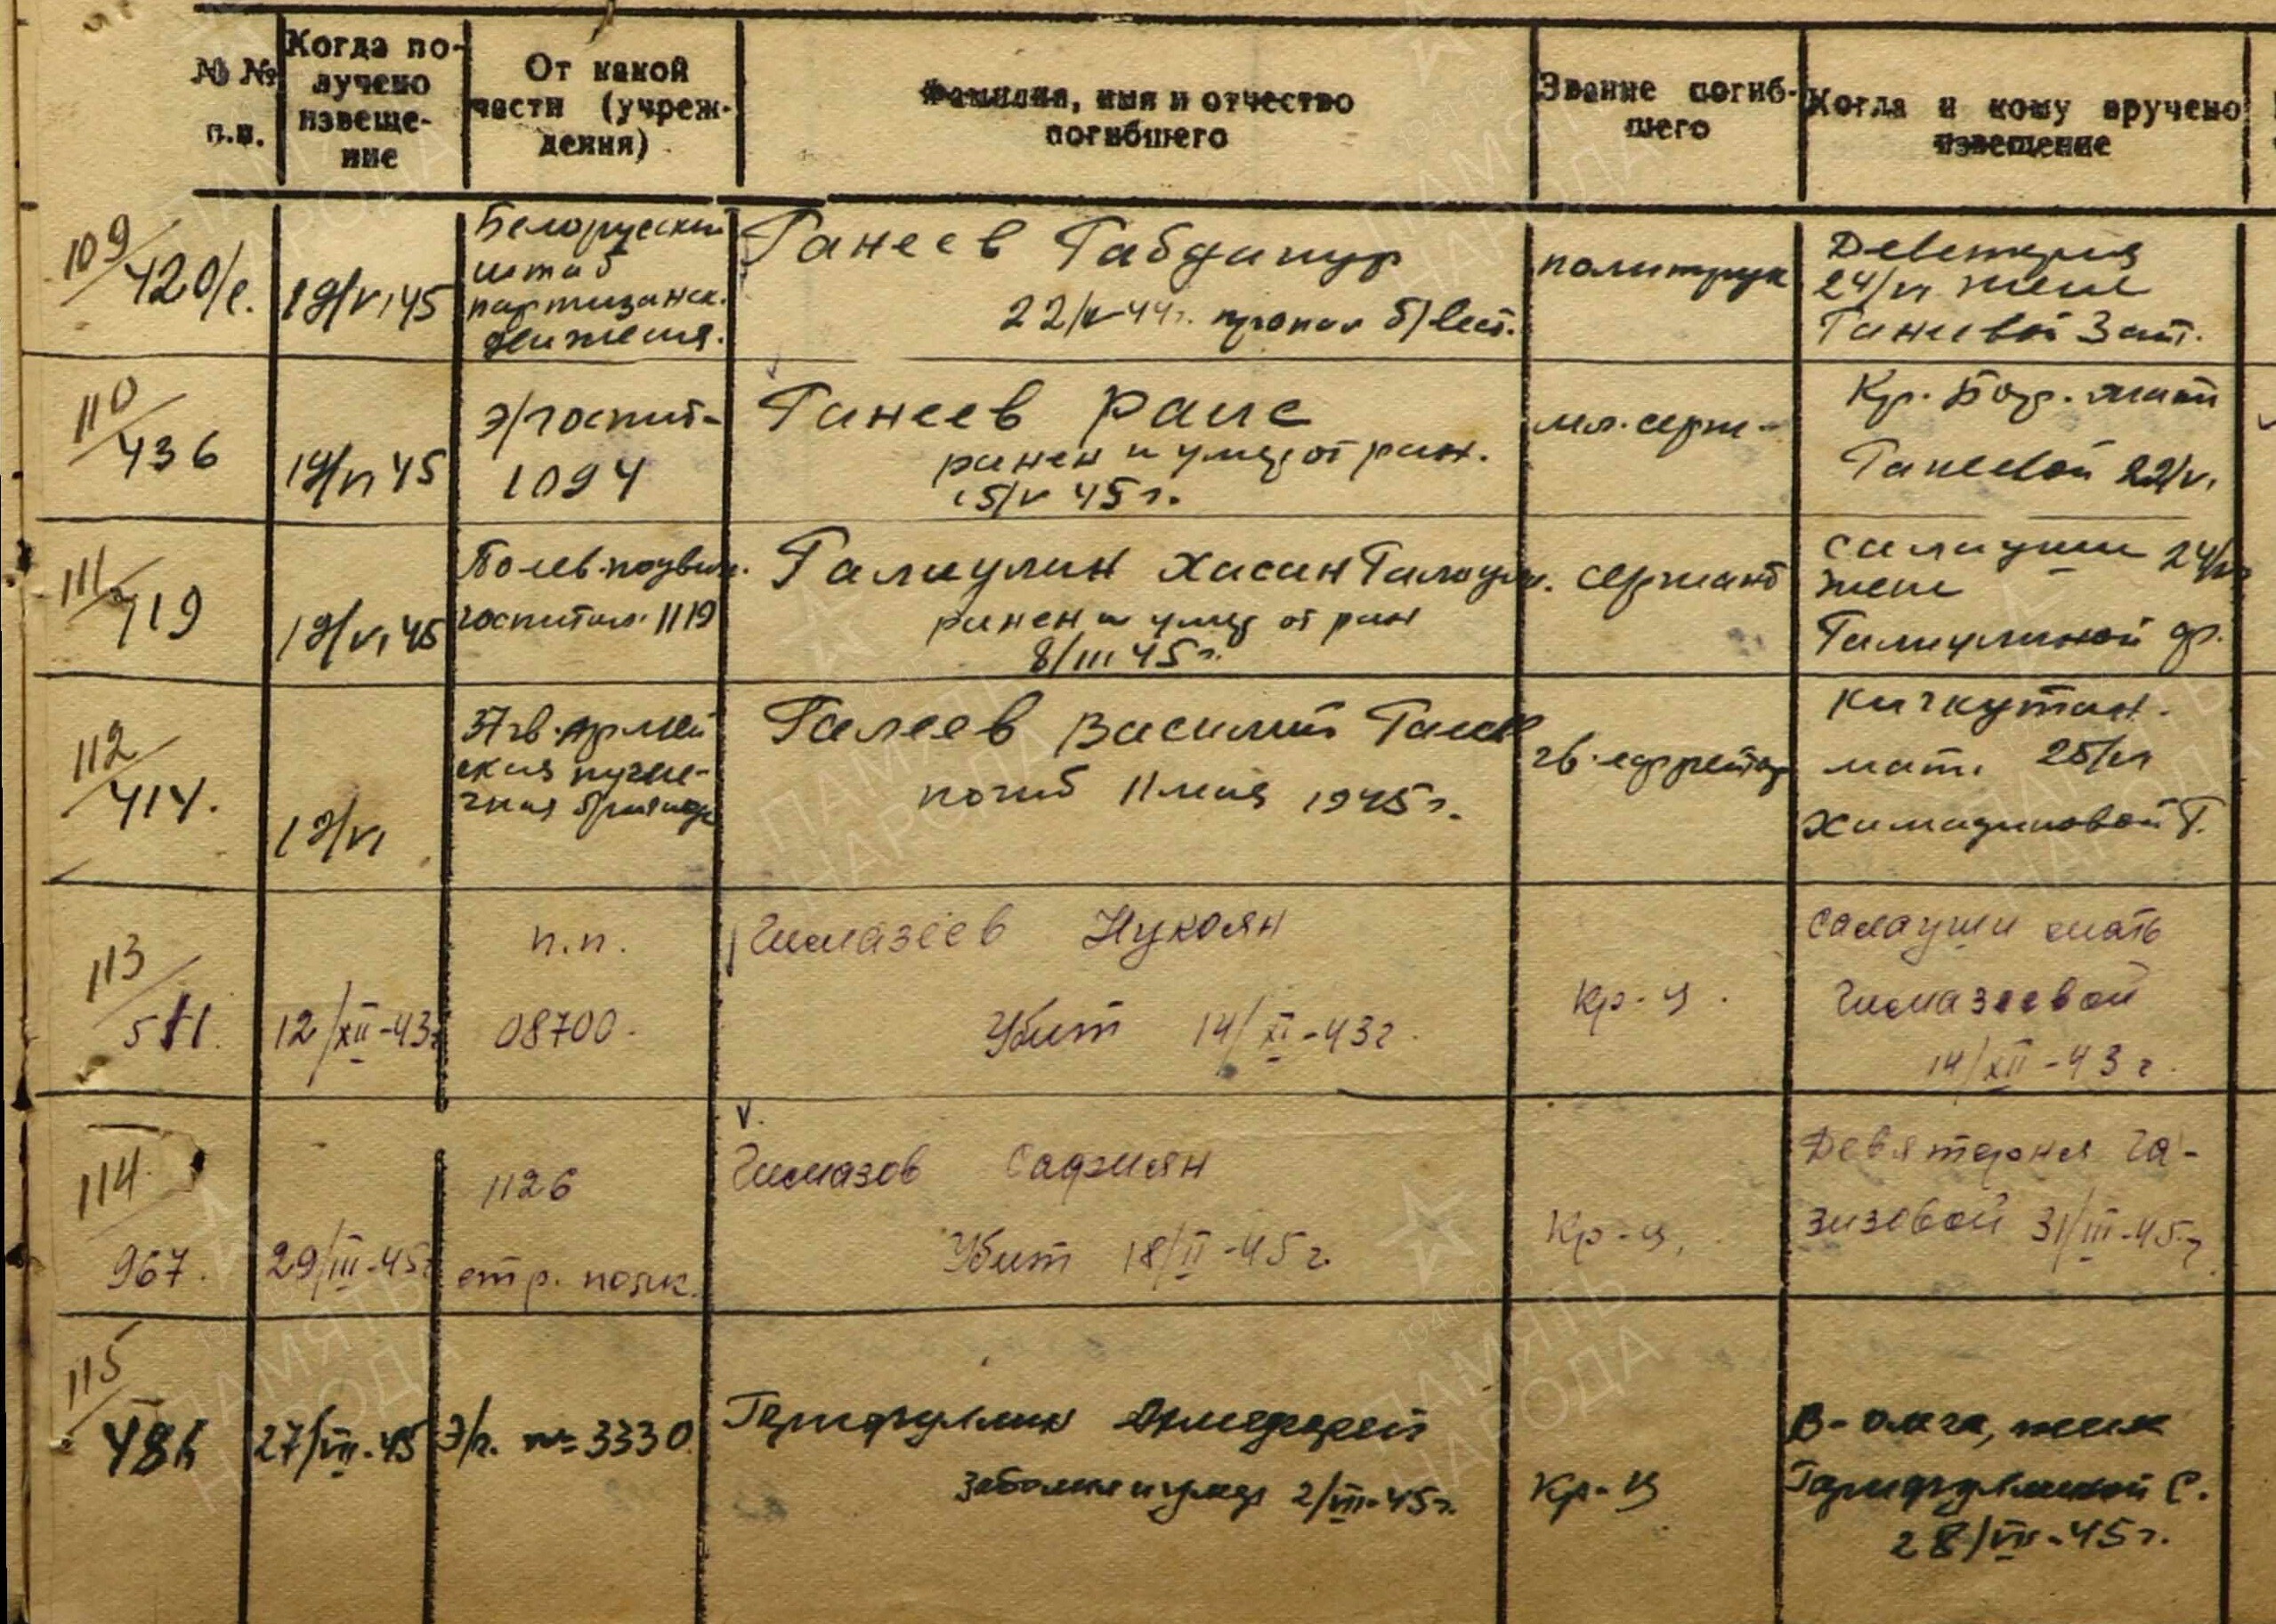 № № п.п.
Когда получено извещение
От какой части (учреждения)
Фамилия, имя и отчество погибшего
Звание погибшего
Когда и кому вручено извещение
109/420/с.
19/VI 45
Белоруский
штаб
партизанск.
движения.
Ганеев Габдинур
22/V-44г. пропал б/вест.
политрук
Девятерня
24/VI жене
Ганеевой Зат.
110/436
19/VI 45
Э/госпит-
1094
Ганеев Раис
ранен и умер от ран.
15/V 45 г.
мл. серж-
Кр. Бор. мати
Ганеевой 22/VI
111/719
19/VI 45
Полев. подвиж.
госпитал. 1119
Галиулин Хасан Галиул.
ранен и умер от ран
8/III 45 г.
сержант
Салауши 24/VI
жене
Галиулиной Ф.
112/414.
19/VI
37 гв. армей
ская пуше-
чная бригада
Галеев Василий
погиб 11 мая 1945 г.
гв. ефрейтор
Кичкутан.
мат. 25/VI
Г.
113/511.
12/XII-43г
п.п.
08700.
Гимазеев Нукоян
Убит 14/XI-43г.
Кр-ц.
Салауши мать
Гимазеевой
14/XII-43 г.
114/967.
29/III-45г
1126
стр. полк.
Гимазов Сафиян
Убит 18/II-45 г.
Кр-ц.
Девятерня Га-
зизовой 31/III-45 г.
115/486
27/VII-45
Э/г. № 3330
Гарифуллин
заболел и умер 2/III-45 г.
Кр-ц
В-Омга, жене
Гарифуллиной С.
28/VII-45 г.
ПАМЯТЬ
НАРОДА